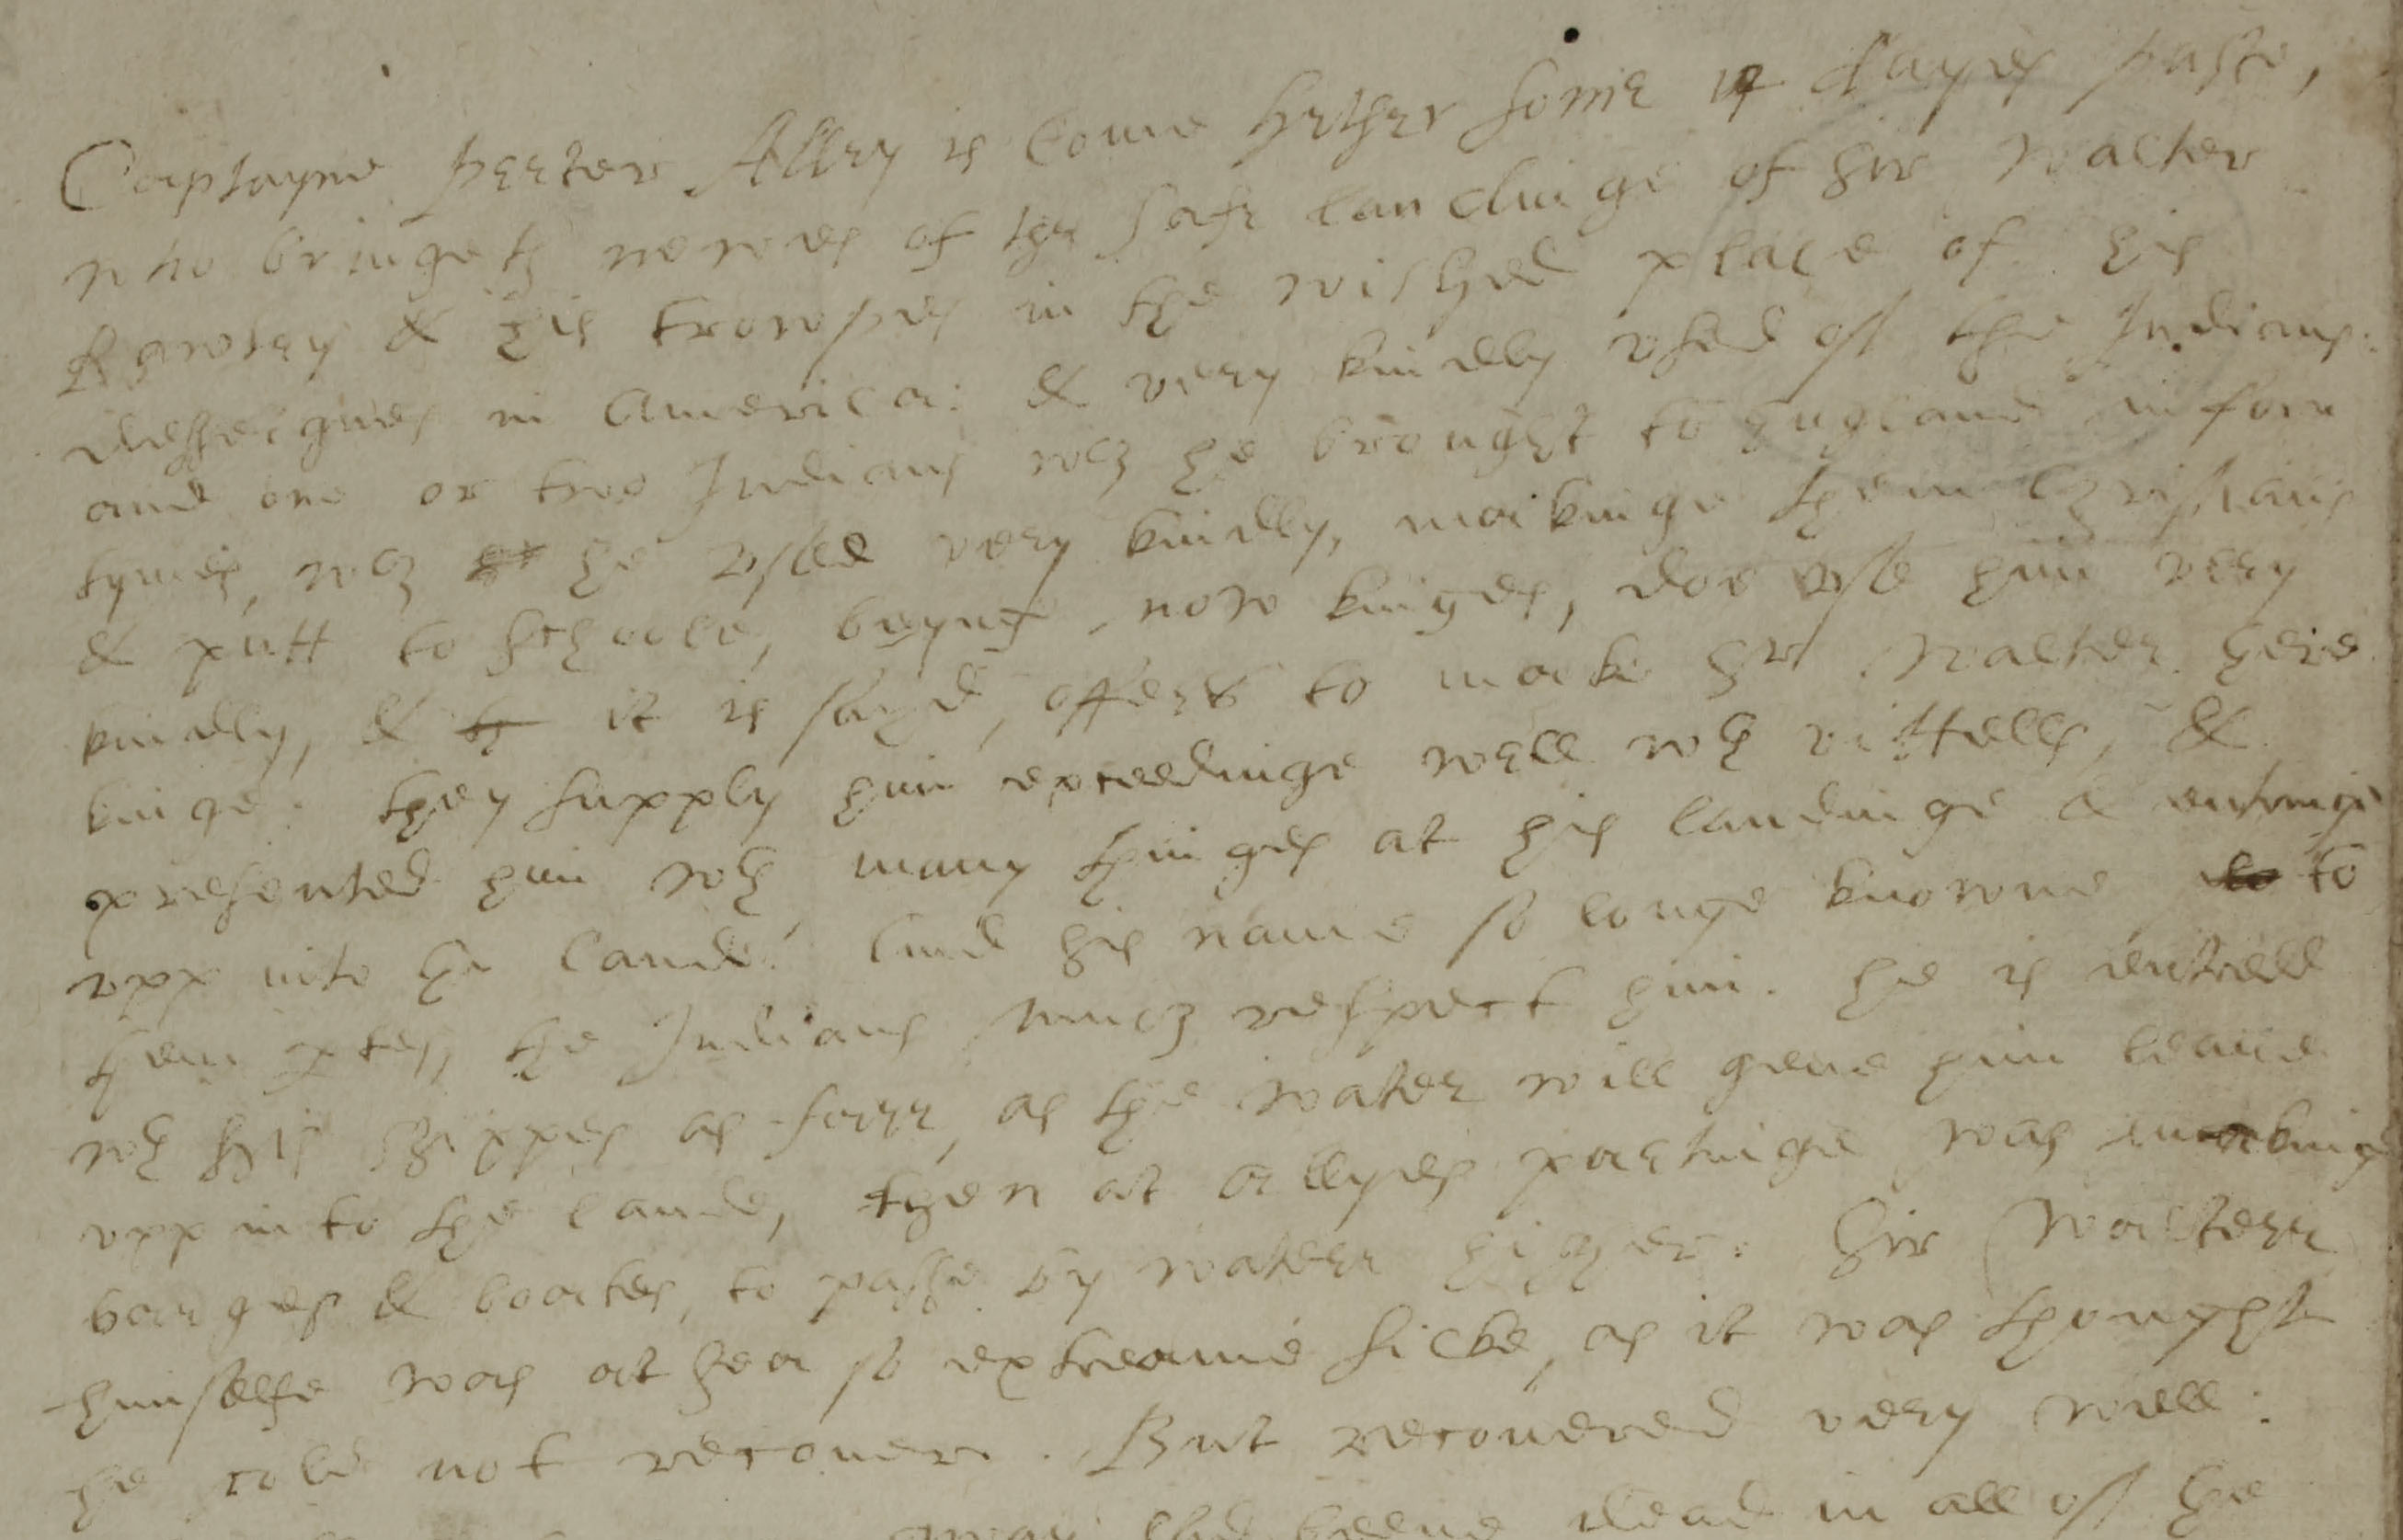 Captayne Peeter Alley is Come hether some dayes paste,
who bringeth newes of the safe landinge of Sir Walter
Rawley & his trowpes in the wished place of his
desseignes in America: & very kindly vsed of the Indians:
and one or two Indians wch he brought to England in form
tymes, wch he vsed very kindly, makinge them Christians
& putt to schoole, beynge now kinges, doe vse him very
kindly, & it is sayd, offers to make Sr Walter here
kinge: they supply him exceedinge well wth vittells, &
presented him wth many thinges at his landinge & entringe
vpp into the lande: And his name so longe knowne to
them the Indians much respect him. he is
wth his shippes as farr, as the water will geue him leaue
vpp into the lande, then at Allyes partinge was makinge
barges & boates, to passe by water higher: Sir Walterr
himselfe was at sea so extreame sicke, as it was thought
he cold not recouer. But recouered very well:
dead in all of the